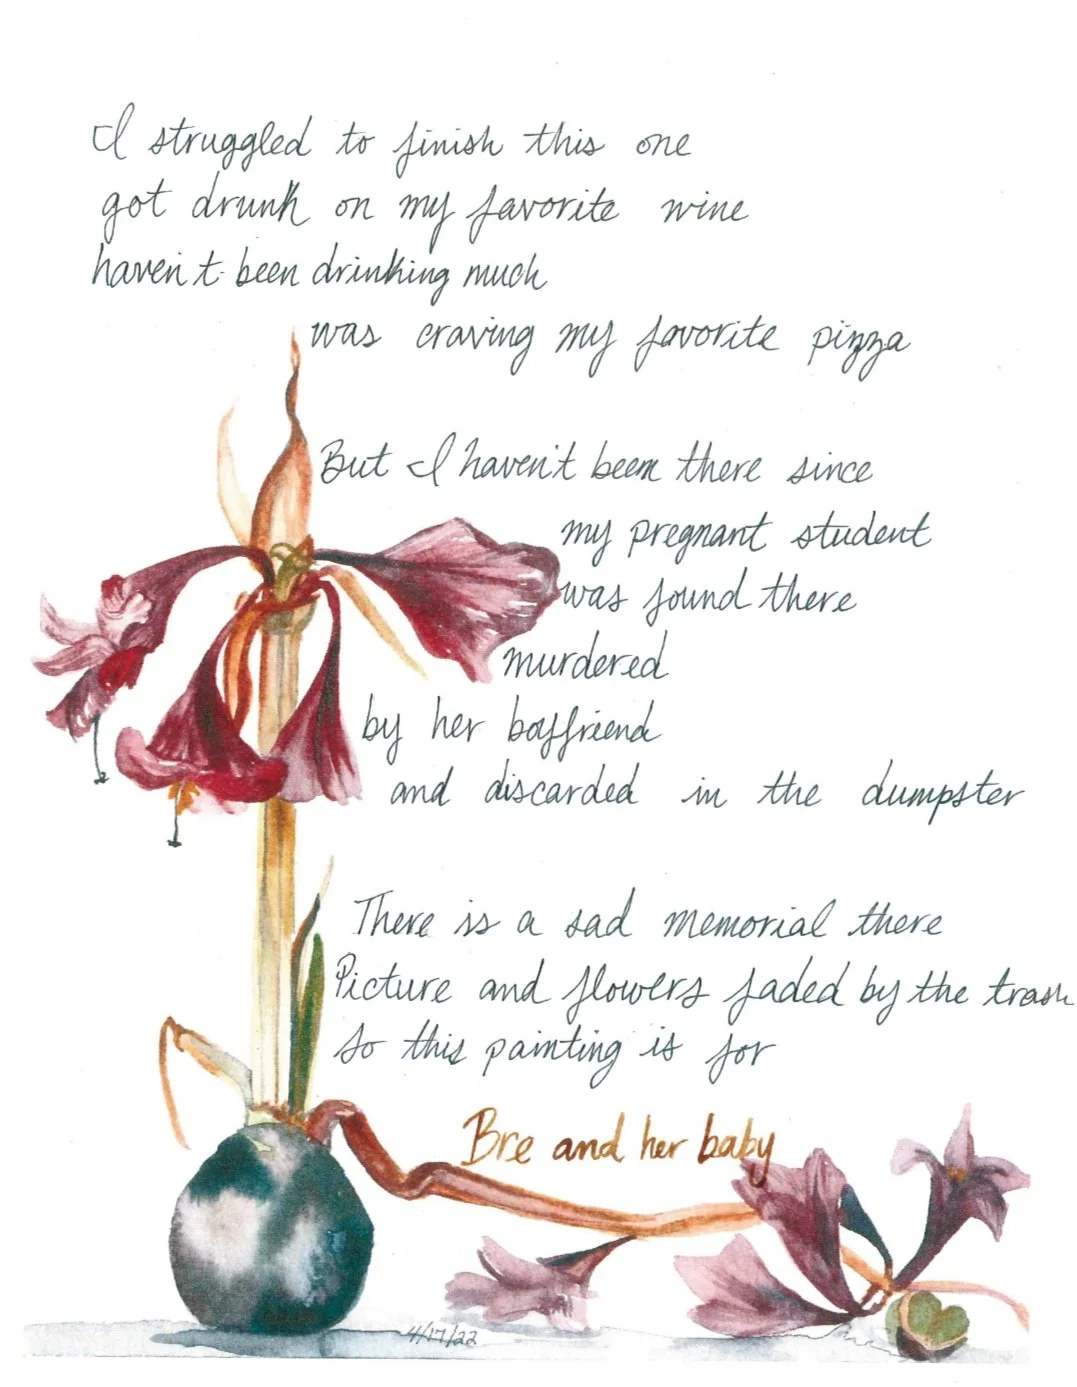 I struggled to finish this one
got drunk on my favorite wine
haven't been drinking much
was craving my favorite pizza
But I haven't been there since
my pregnant student
was found there
murdered
by her boyfriend
and discarded in the dumpster
There is a sad memorial there
Picture and flowers faded by the trash
So this painting is for
Bre and her baby
4/17/22